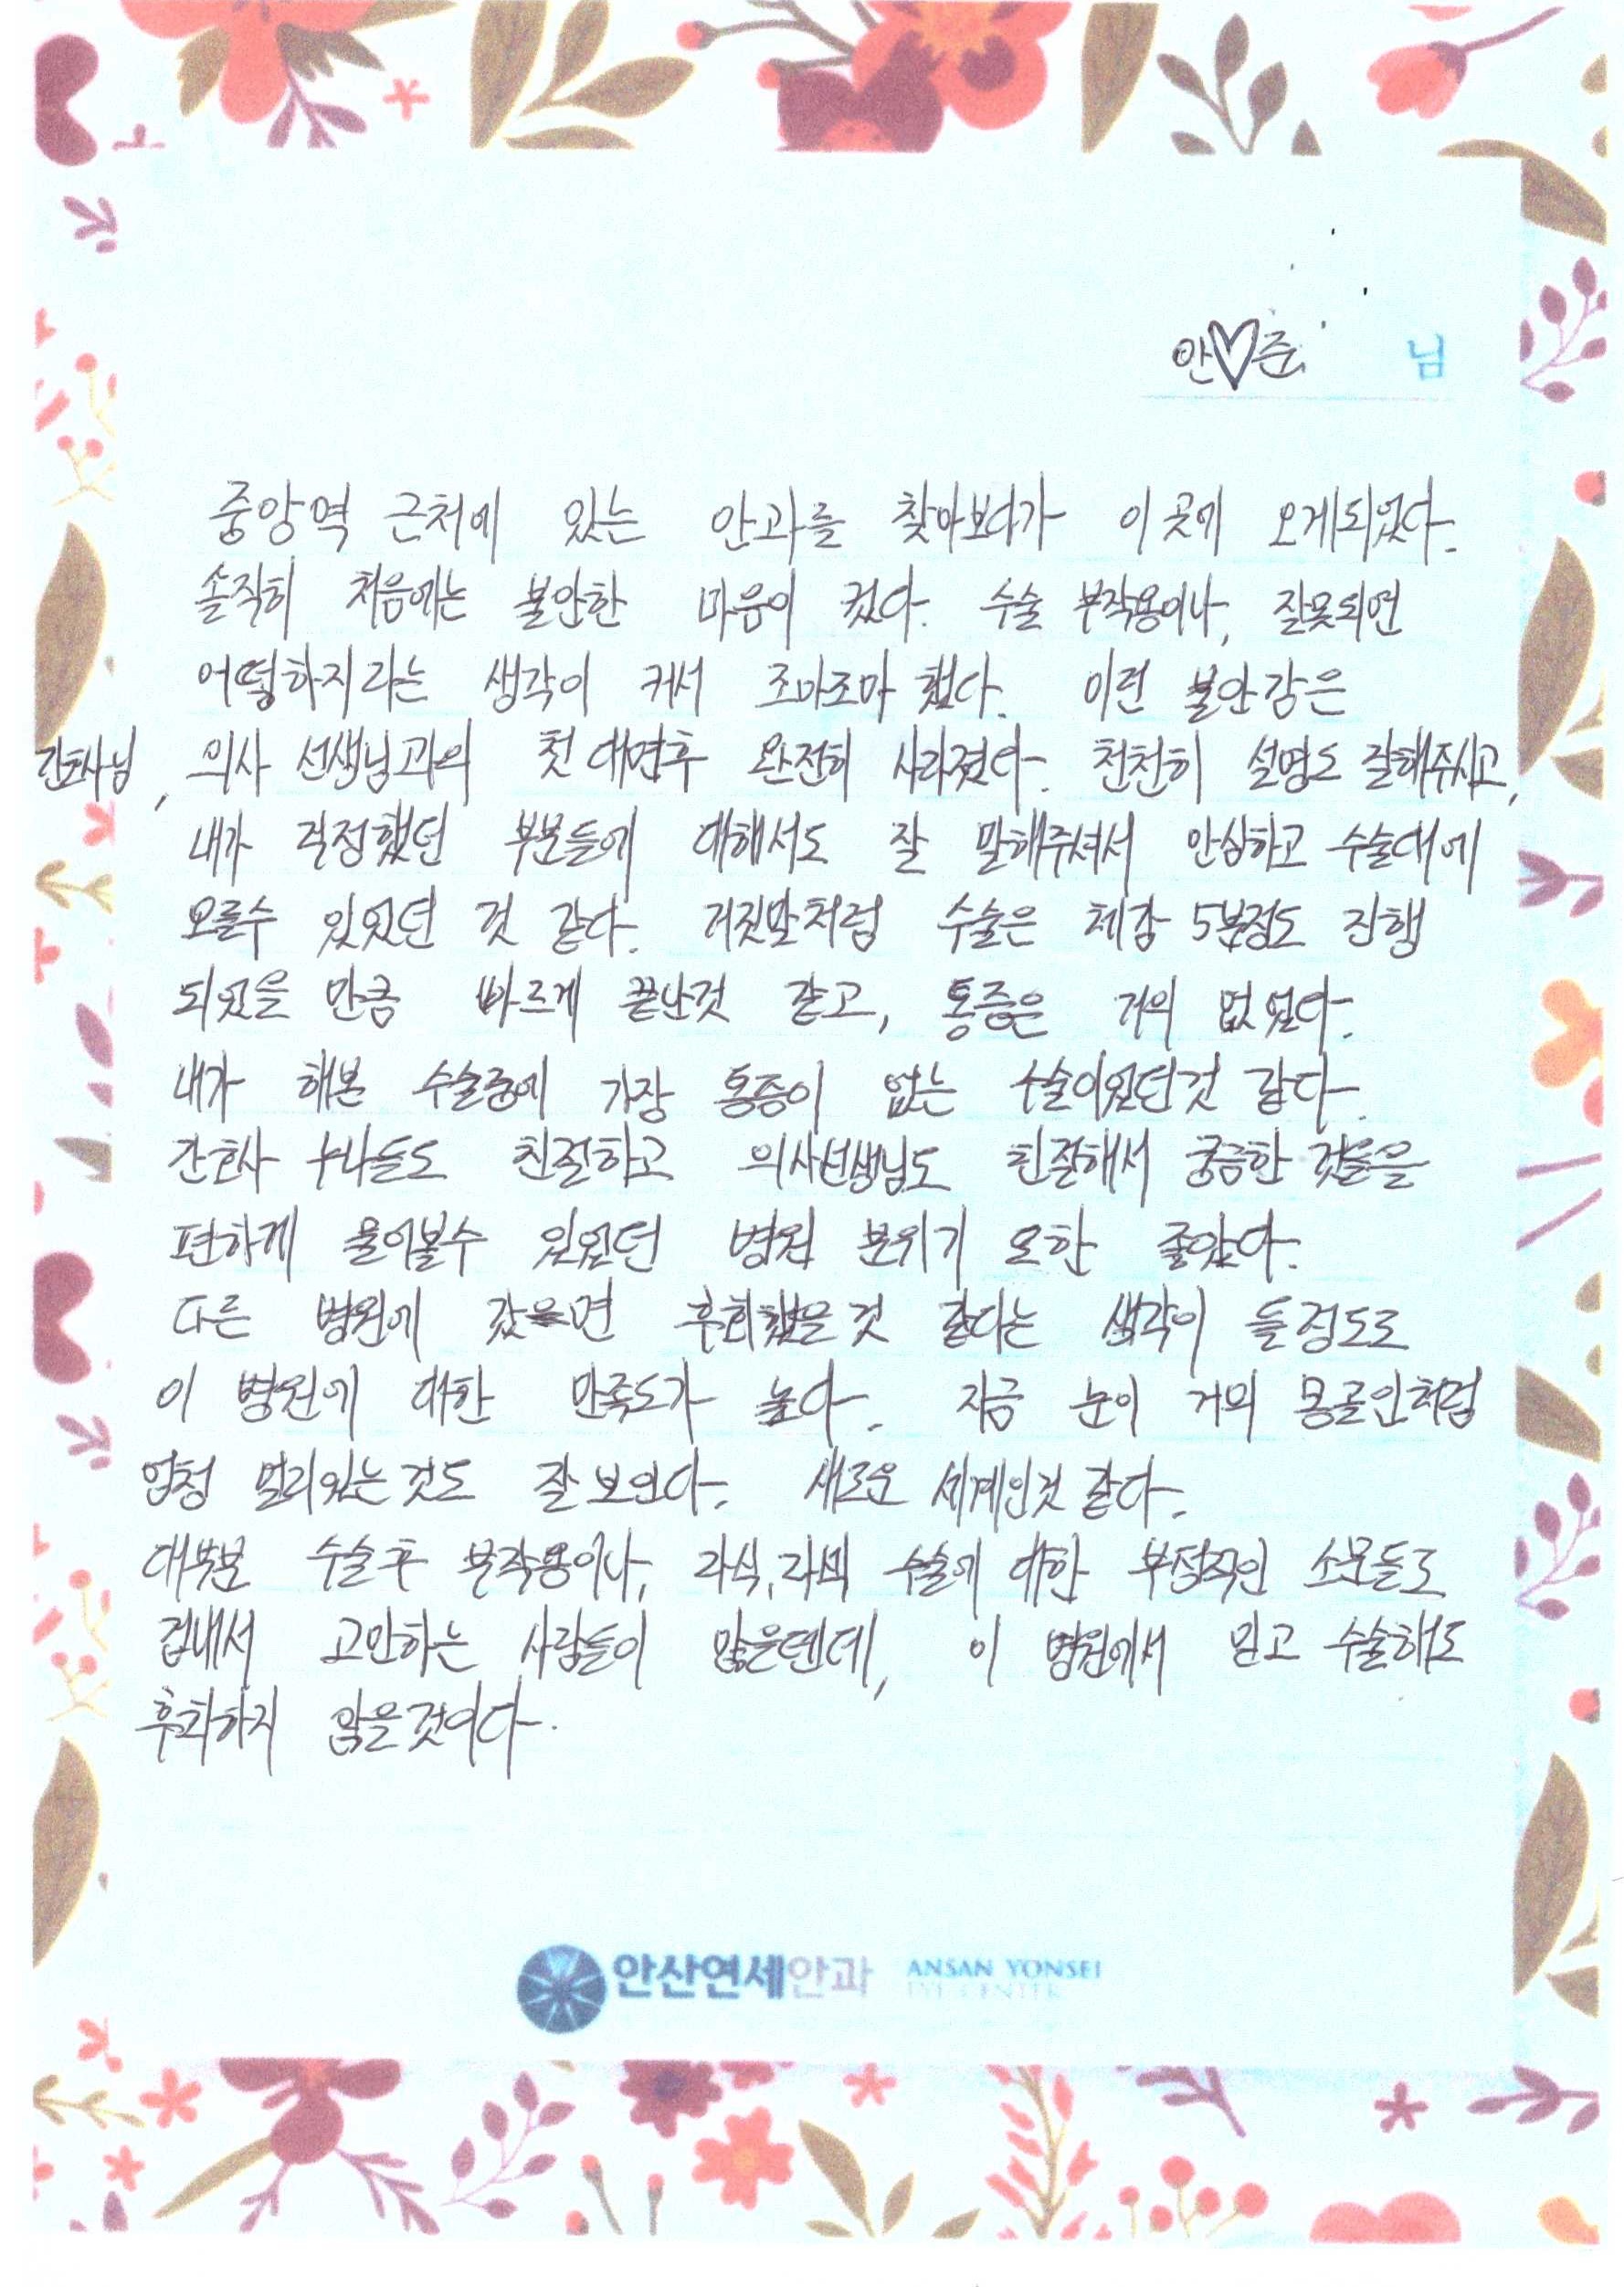 안♡준 님
중앙역 근처에 있는 안과를 찾아보다가 이 곳에 오게되었다.
솔직히 처음에는 불안한 마음이 컸다. 수술 부작용이나, 잘못되면
어떻하지라는 생각이 커서 조마조마 했다. 이런 불안감은
간호사님, 의사 선생님과의 첫 대면후 완전히 사라졌다. 천천히 설명도 잘해주시고,
내가 걱정했던 부분들에 대해서도 잘 말해주셔서 안심하고 수술대에
오를수 있었던 것 같다. 거짓말처럼 수술은 체감 5분정도 진행
되었을 만큼 빠르게 끝난것 같고, 통증은 거의 없었다.
내가 해본 수술중에 가장 통증이 없는 수술이었던것 같다.
간호사 누나들도 친절하고 의사선생님도 친절해서 궁금한 것들을
편하게 물어볼수 있었던 병원 분위기 또한 좋았다.
다른 병원에 갔으면 후회했을 것 같다는 생각이 들정도로
이 병원에 대한 만족도가 높다. 지금 눈이 거의 몽골인처럼
엄청 멀리있는 것도 잘 보인다. 새로운 세계인것 같다.
대부분 수술후 부작용이나, 라식, 라섹 수술에 대한 부정적인 소문들로
겁내서 고민하는 사람들이 많을텐데, 이 병원에서 믿고 수술해도
후회하지 않을것이다.
안산연세안과 ANSAN YONSEI
EYE CENTER